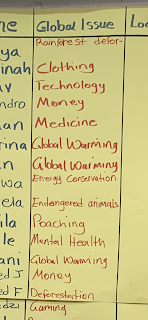 ne Global Issue Loc
ya Rainforest defor-
inah Clothing
Technology
ndro Money
an Medicine
rina Global Warming
n Global Warming
wa Energy Conservation
ela Endangered animals
ila Poaching
le Mental Health
ani Global Warming
ed J Money
ed F Deforestation
Gaming